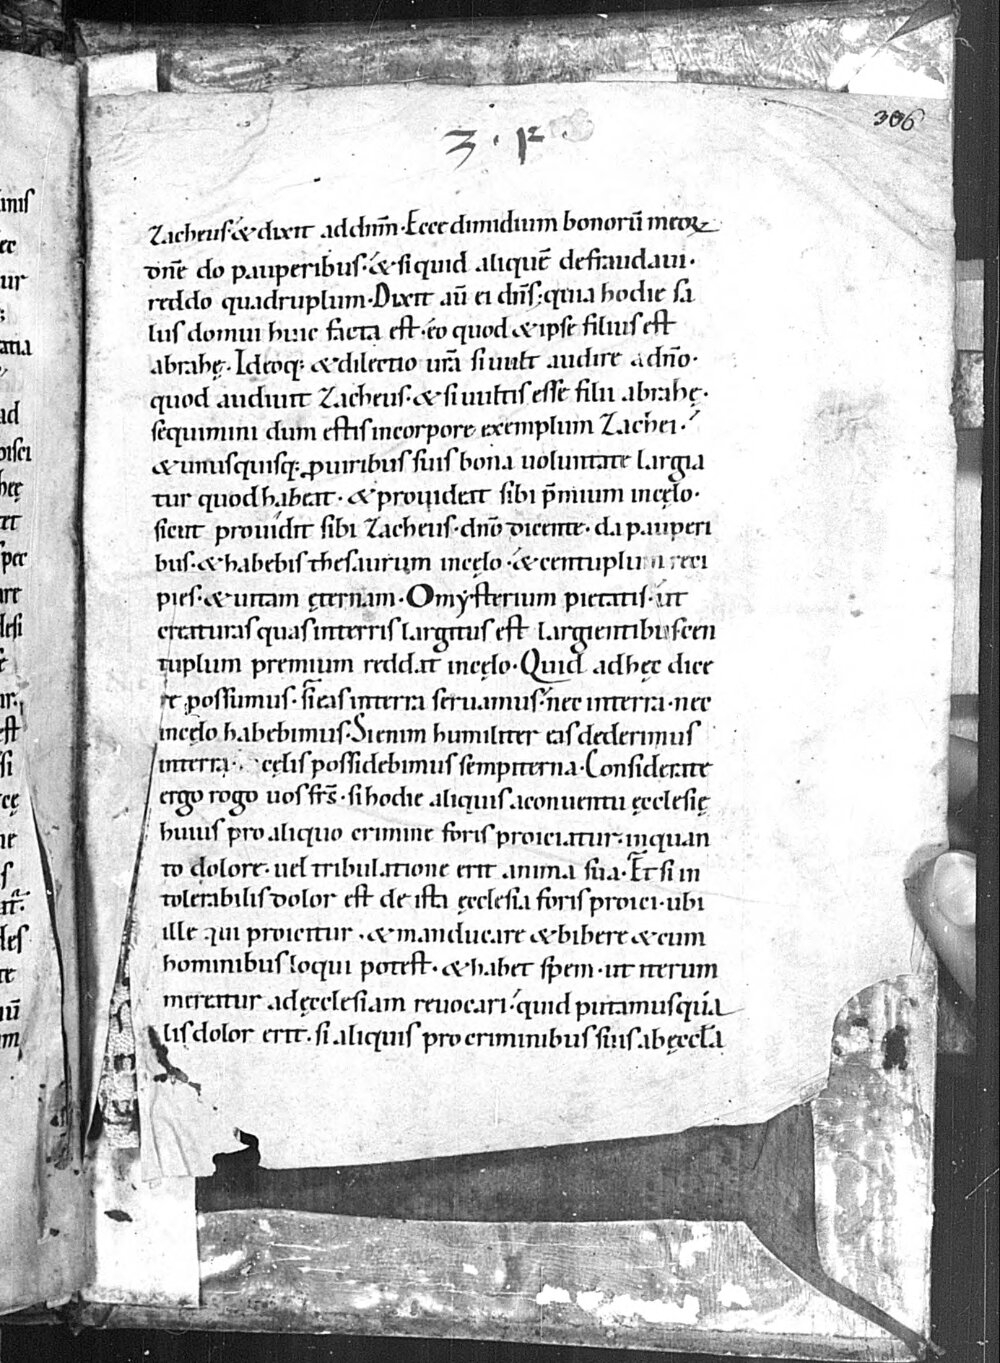 306
3 · F
inis
ec
ur
atia
ad
pisci
hec
tet
spec
are
lesi
ur.
est
si
ce
ne
s
at.
les
te
nū
m
Zacheus· & dixit ad dnm̄· Ecce dimidium bonorū meoꝝ
dn̄e do pauperibus· & si quid aliquē defraudaui·
reddo quadruplum· Dixit aū ei dn̄s; quia hodie sa
lus domui huic facta est· eo quod & ipse filius est
abrahę· Ideoq; & dilectio ur̄a si uult audire a dn̄o·
quod audiuit Zacheus· & si uultis esse filii abrahę·
sequimini dum estis in corpore exemplum Zachei·
& unusquisq; ꝓ uiribus suis bona uoluntate largia
tur quod habett· & prouidett sibi p̄mium in cęlo·
sicut prouidit sibi Zacheus· dn̄o dicente· da pauperi
bus· & habebis thesaurum in cęlo· & centuplum reci
pies· & uitam ęternam· O mysterium pietatis· ut
creaturas quas in terris largitus est largientibus cen
tuplum premium reddat in cęlo· Quid ad hęc dice
re possumus· si eas in terra seruamus· nec in terra· nec
in cęlo habebimus· Si enim humiliter eas dederimus
in terra· cęlis possidebimus sempiterna· Considerate
ergo rogo uos fr̄s· si hodie aliquis a conuentu ęcclesię
huius pro aliquo crimine foris proiciatur· in quan
to dolore· uel tribulatione erit anima sua· Et si in
tolerabilis dolor est de ista ęcclesia foris proici· ubi
ille qui proicitur· & manducare & bibere & cum
hominibus loqui potest· & habet spem· ut iterum
mereatur ad ęcclesiam reuocari· quid putamus qua
lis dolor erit· si aliquis pro criminibus suis ab ęccła